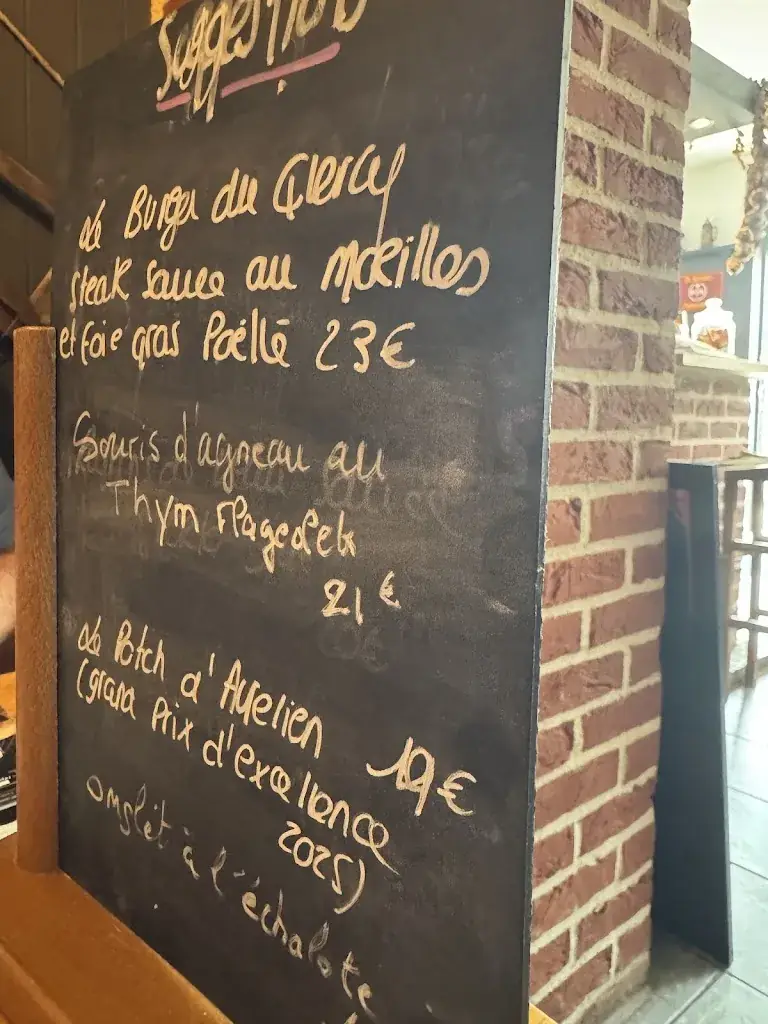 Suggestions
Le Burger du Qlercy
Steak Sauce au Moeilles
et foie gras Poëllé 23€
Souris d'agneau au
Thym Flageolets
21€
Le Potch d'Aurelien 19€
(grand Prix d'excellence
2025)
omslèt à l'échalote